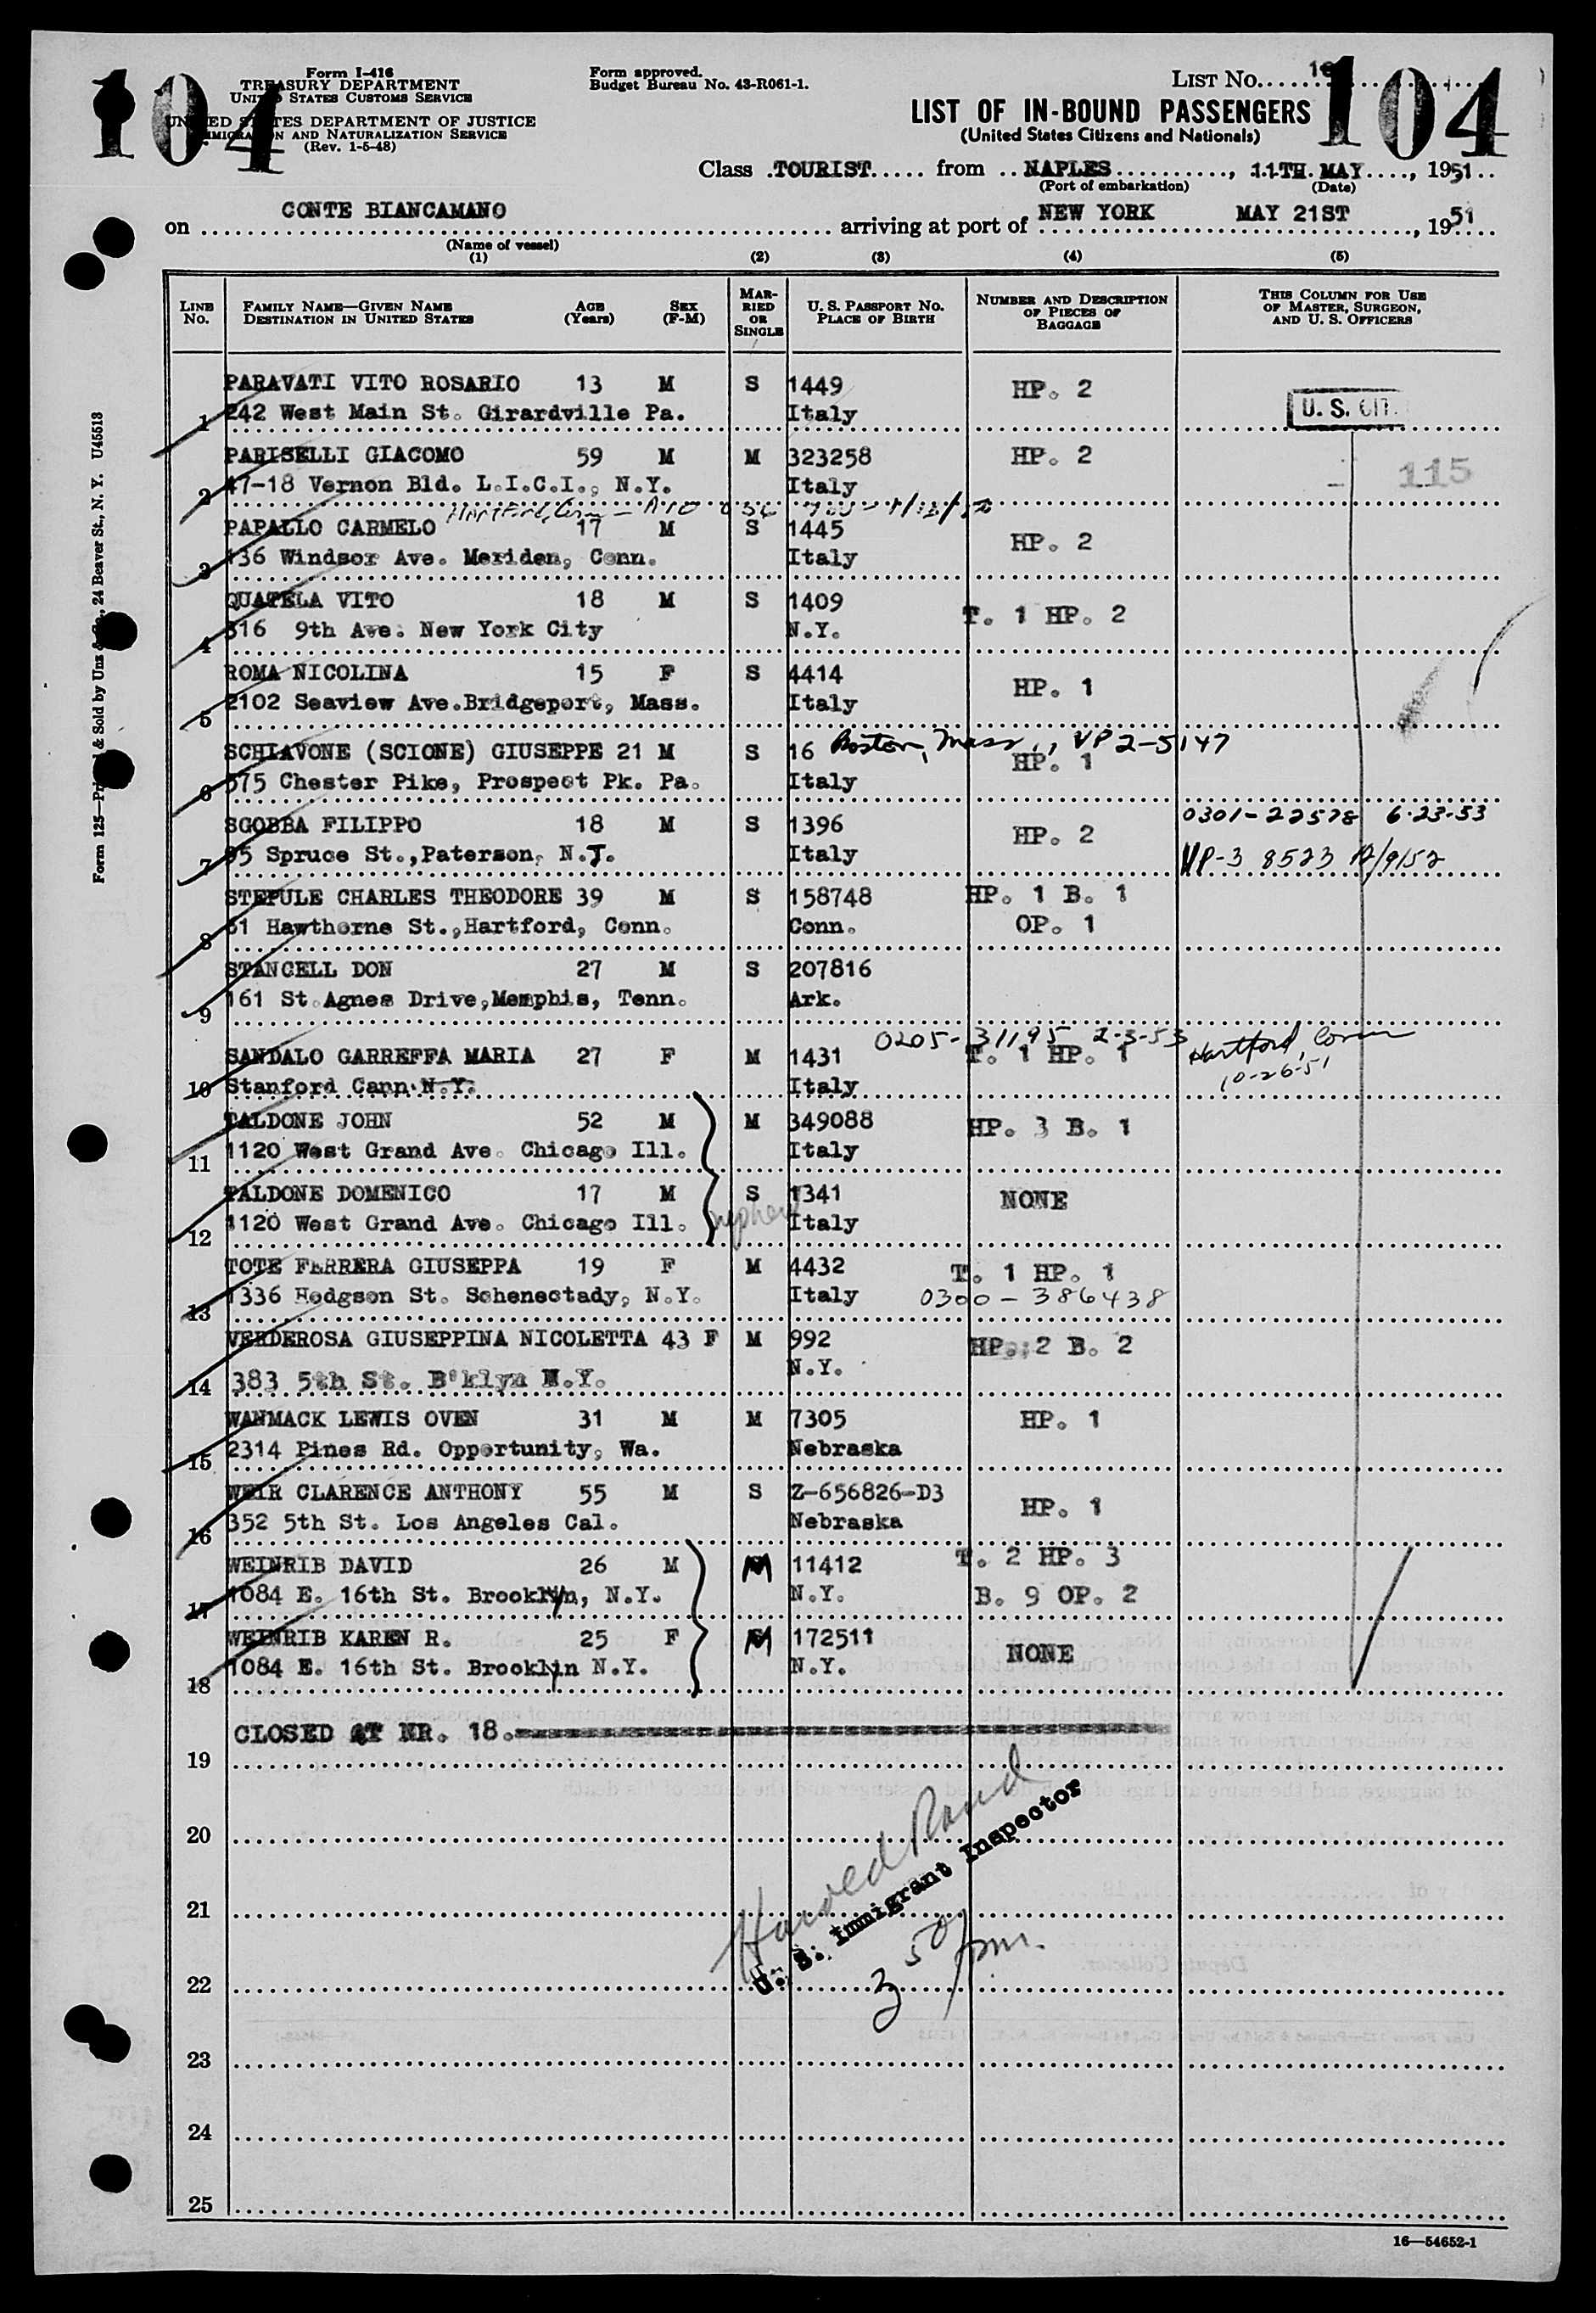 104
Form I-416
TREASURY DEPARTMENT
UNITED STATES CUSTOMS SERVICE
UNITED STATES DEPARTMENT OF JUSTICE
IMMIGRATION AND NATURALIZATION SERVICE
(Rev. 1-5-48)
Form approved.
Budget Bureau No. 43-R061-1.
LIST NO.
104
LIST OF IN-BOUND PASSENGERS
(United States Citizens and Nationals)
Class TOURIST from NAPLES, 11TH MAY, 1951
(Port of embarkation) (Date)
on CONTE BIANCAMANO arriving at port of NEW YORK MAY 21ST, 1951
(Name of vessel)
(1) (2) (3) (4) (5)
LINE NO. FAMILY NAME—GIVEN NAME DESTINATION IN UNITED STATES AGE (Years) SEX (F-M) MARRIED OR SINGLE U. S. PASSPORT NO. PLACE OF BIRTH NUMBER AND DESCRIPTION OF PIECES OF BAGGAGE THIS COLUMN FOR USE OF MASTER, SURGEON, AND U. S. OFFICERS
PARAVATI VITO ROSARIO 13 M S 1449 HP. 2
1 242 West Main St. Girardville Pa. Italy U. S. CIT.
PARISELLI GIACOMO 59 M M 323258 HP. 2 115
2 47-18 Vernon Bld. L.I.C.I., N.Y. Italy
Hartford, Conn
PAPALLO CARMELO 17 M S 1445 HP. 2
3 136 Windsor Ave. Meriden, Conn. Italy
QUATELA VITO 18 M S 1409 T. 1 HP. 2
4 316 9th Ave. New York City N.Y.
ROMA NICOLINA 15 F S 4414 HP. 1
5 2102 Seaview Ave.Bridgeport, Mass. Italy
Boston, Mass., VP 2-5147
SCHIAVONE (SCIONE) GIUSEPPE 21 M S 16 HP. 1
6 575 Chester Pike, Prospect Pk. Pa. Italy
0301-22578 6-23-53
SGOBBA FILIPPO 18 M S 1396 HP. 2
7 95 Spruce St.,Paterson, N.J. Italy VP-3 8523 12/9/52
STEPULE CHARLES THEODORE 39 M S 158748 HP. 1 B. 1
8 61 Hawthorne St.,Hartford, Conn. Conn. OP. 1
STANCELL DON 27 M S 207816
9 161 St.Agnes Drive,Memphis, Tenn. Ark.
0205-31195 2-3-53 Hartford, Conn
SANDALO GARREFFA MARIA 27 F M 1431 T. 1 HP. 1 10-26-51
10 Stanford Conn. N.Y. Italy
TALDONE JOHN 52 M M 349088 HP. 3 B. 1
11 1120 West Grand Ave. Chicago Ill. Italy
TALDONE DOMENICO 17 M S 1341 NONE
12 1120 West Grand Ave. Chicago Ill. nephew Italy
TOTE FERRERA GIUSEPPA 19 F M 4432 T. 1 HP. 1
13 1336 Hodgson St. Schenectady, N.Y. Italy 0300-386438
VERDEROSA GIUSEPPINA NICOLETTA 43 F M 992 HP. 2 B. 2
14 383 5th St. B'klyn N.Y. N.Y.
WANMACK LEWIS OVEN 31 M M 7305 HP. 1
15 2314 Pines Rd. Opportunity, Wa. Nebraska
WEIR CLARENCE ANTHONY 55 M S Z-656826-D3 HP. 1
16 352 5th St. Los Angeles Cal. Nebraska
WEINRIB DAVID 26 M M 11412 T. 2 HP. 3
17 1084 E. 16th St. Brooklyn, N.Y. N.Y. B. 9 OP. 2
WEINRIB KAREN R. 25 F M 172511 NONE
18 1084 E. 16th St. Brooklyn N.Y. N.Y.
CLOSED AT NR. 18.
19
20
21
22
23
24
25
Harold Rand
U. S. Immigrant Inspector
3 50 pm.
16—54652-1
Form 125—Printed & Sold by Unz & Co., 24 Beaver St., N. Y. U45513